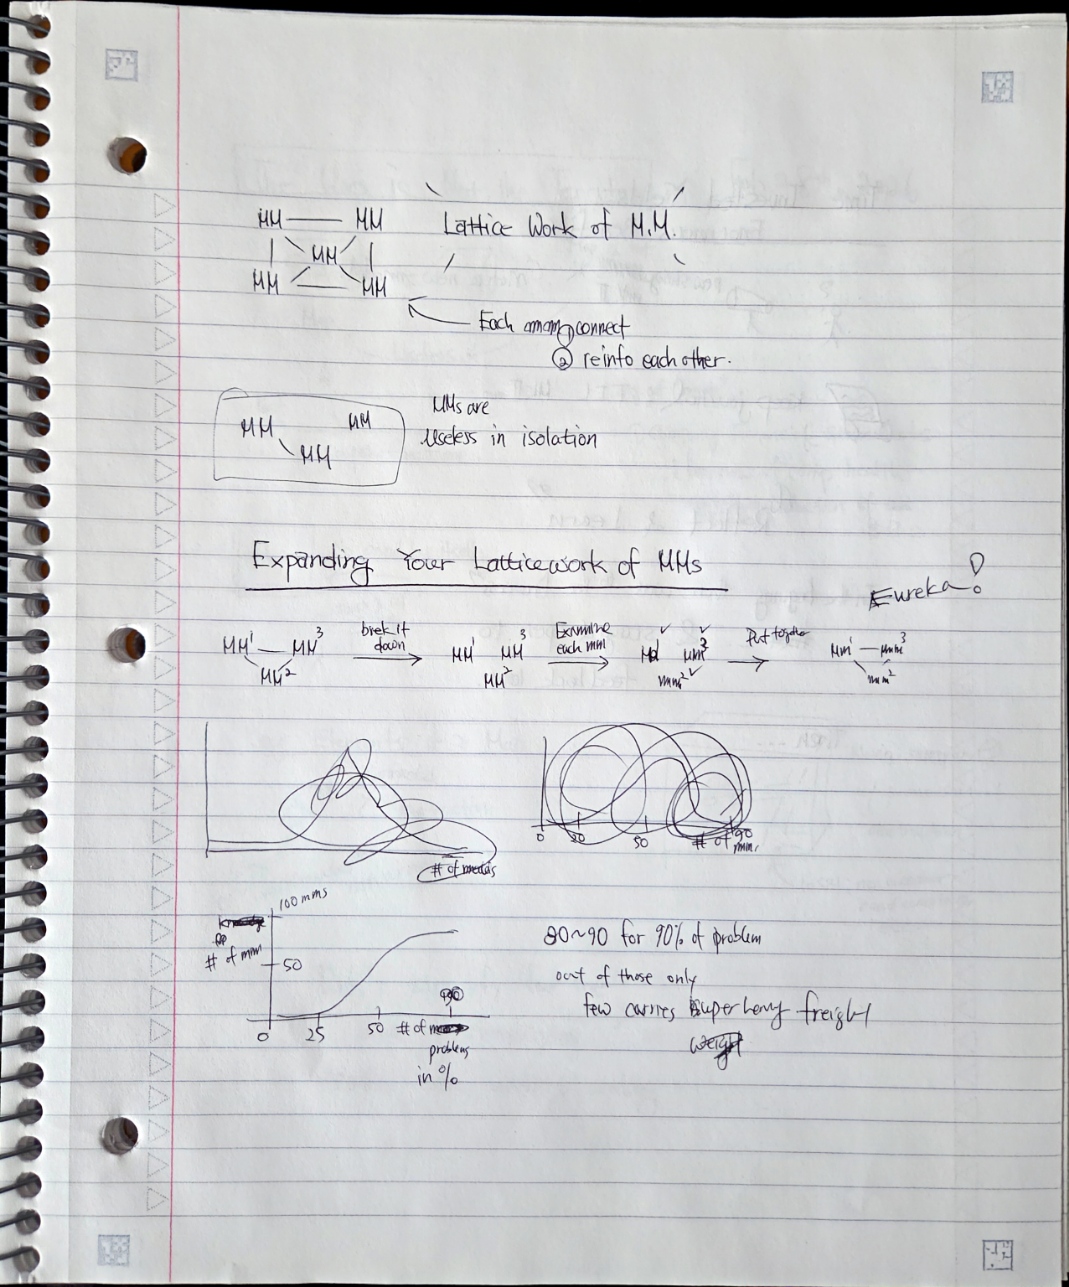 MM MM
MM
MM MM
Lattice Work of M.M.
Each mm connect
② reinfo each other.
MM MM
MM
MMs are
useless in isolation
Expanding Your Latticework of MMs
Eureka!
MM¹ MM³
MM²
brek it
down
MM¹ MM³
MM²
Examine
each mm
mm³
mm²
Put together
MM¹ mm³
mm²
# of
0 50 # of 90
mms
100 mms
# of mm
50
0 25 50 # of
problems
in %
80~90 for 90% of problem
out of those only
few carries super heavy freight